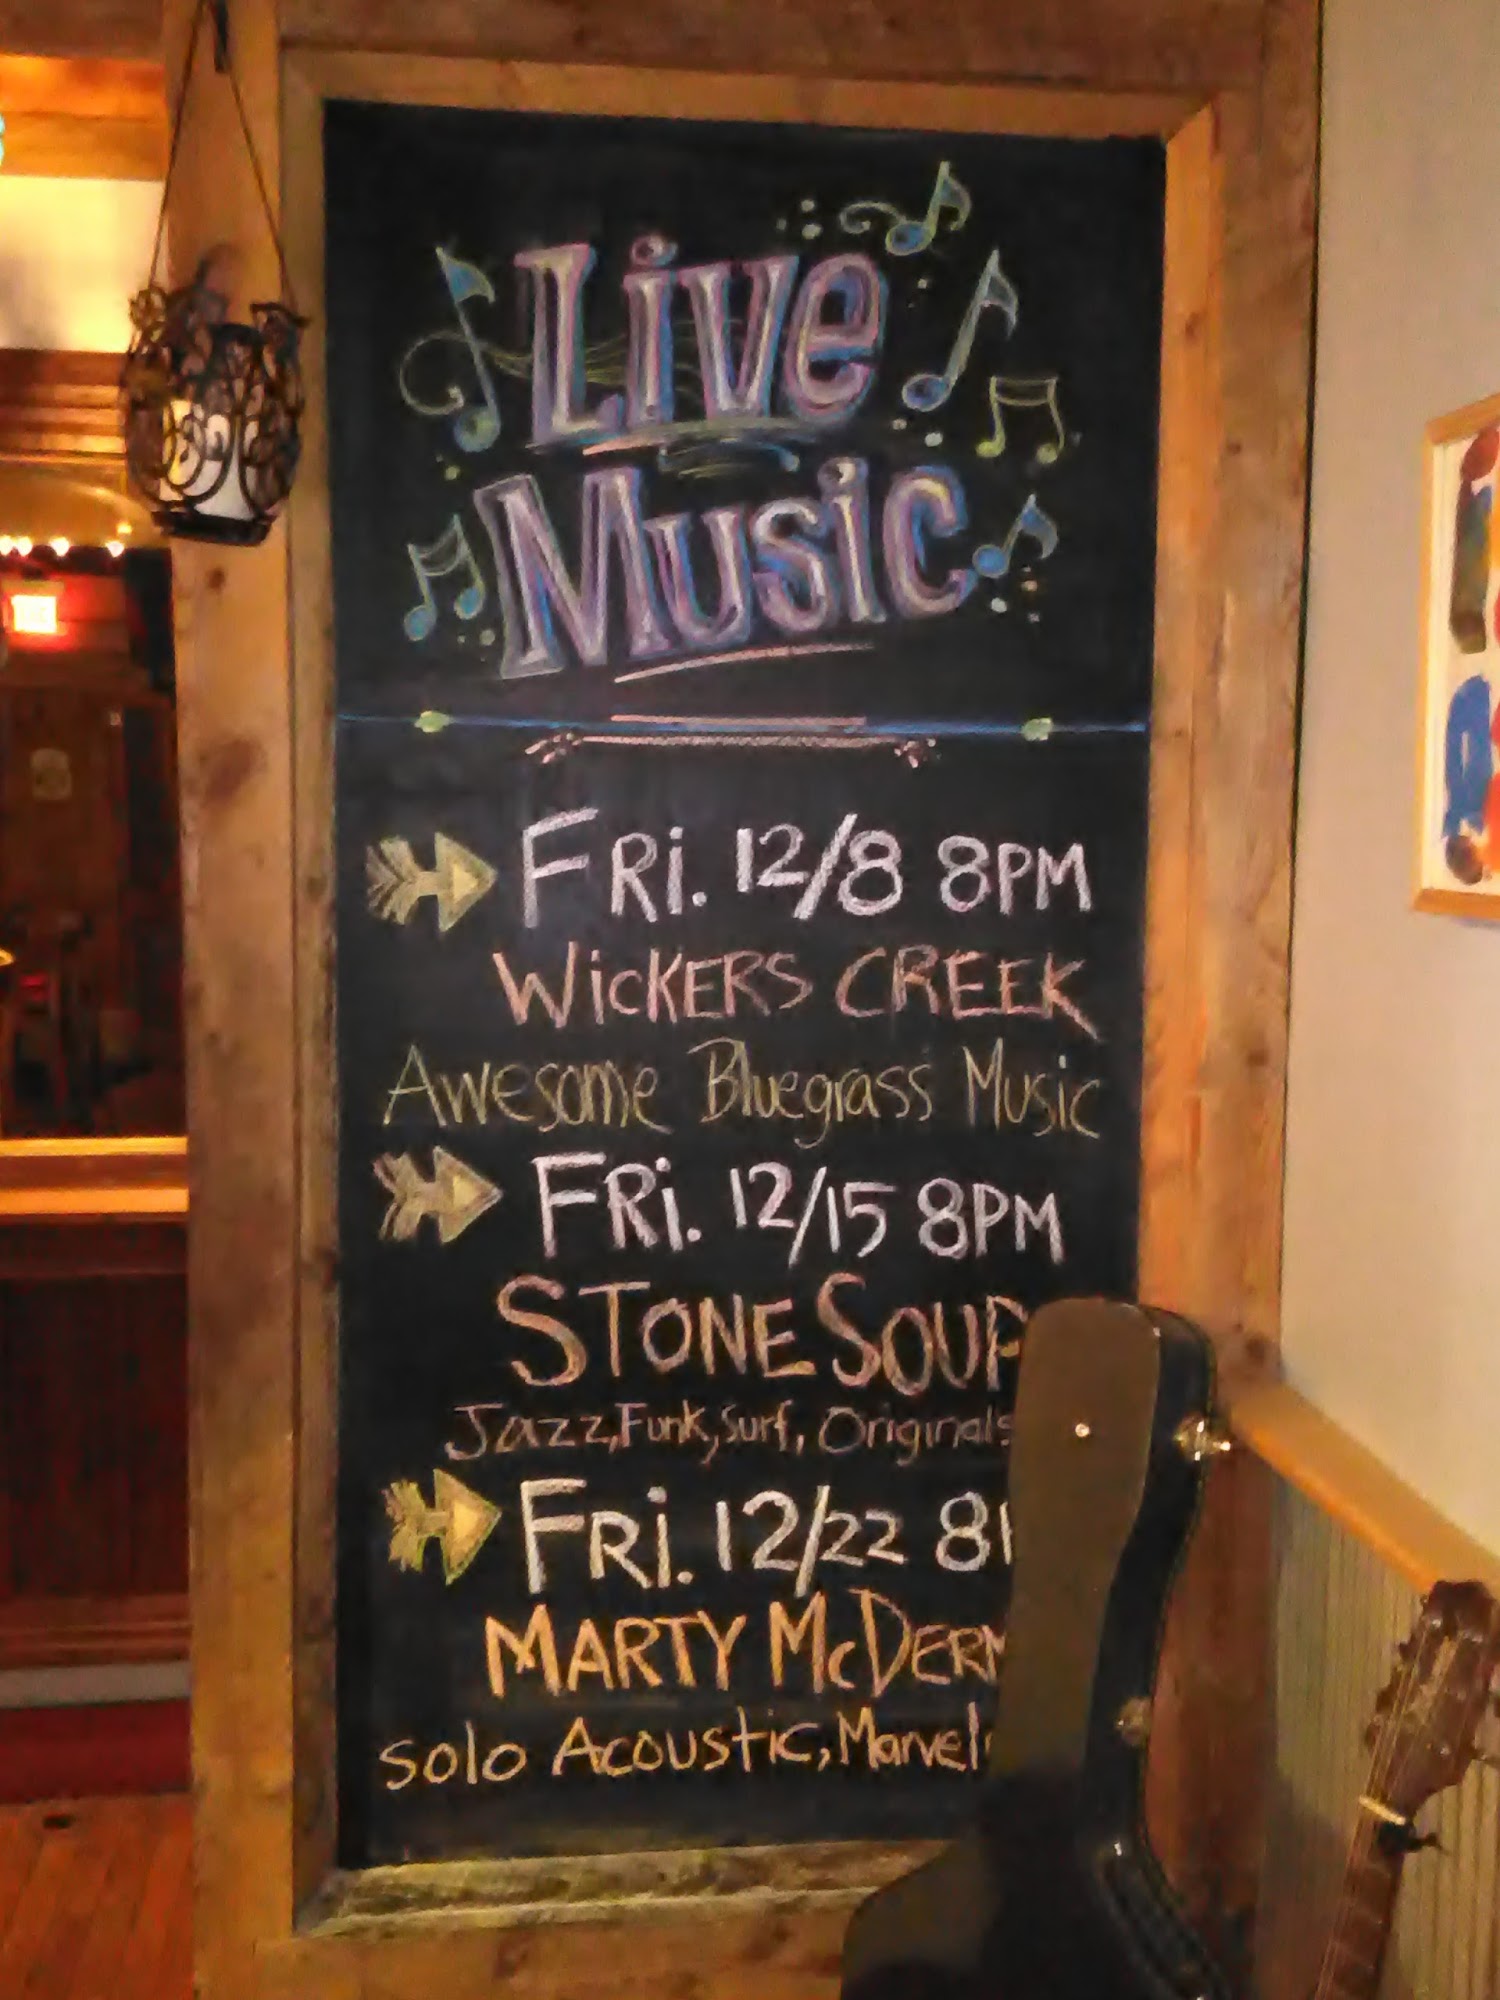 Live
Music
FRi. 12/8 8PM
WicKERS CREEK
Awesome Bluegrass Music
FRi. 12/15 8PM
STONE SOUP
Jazz, Funk, Surf, Originals
FRi. 12/22 8
MARTY McDERM
Solo Acoustic, Marvel